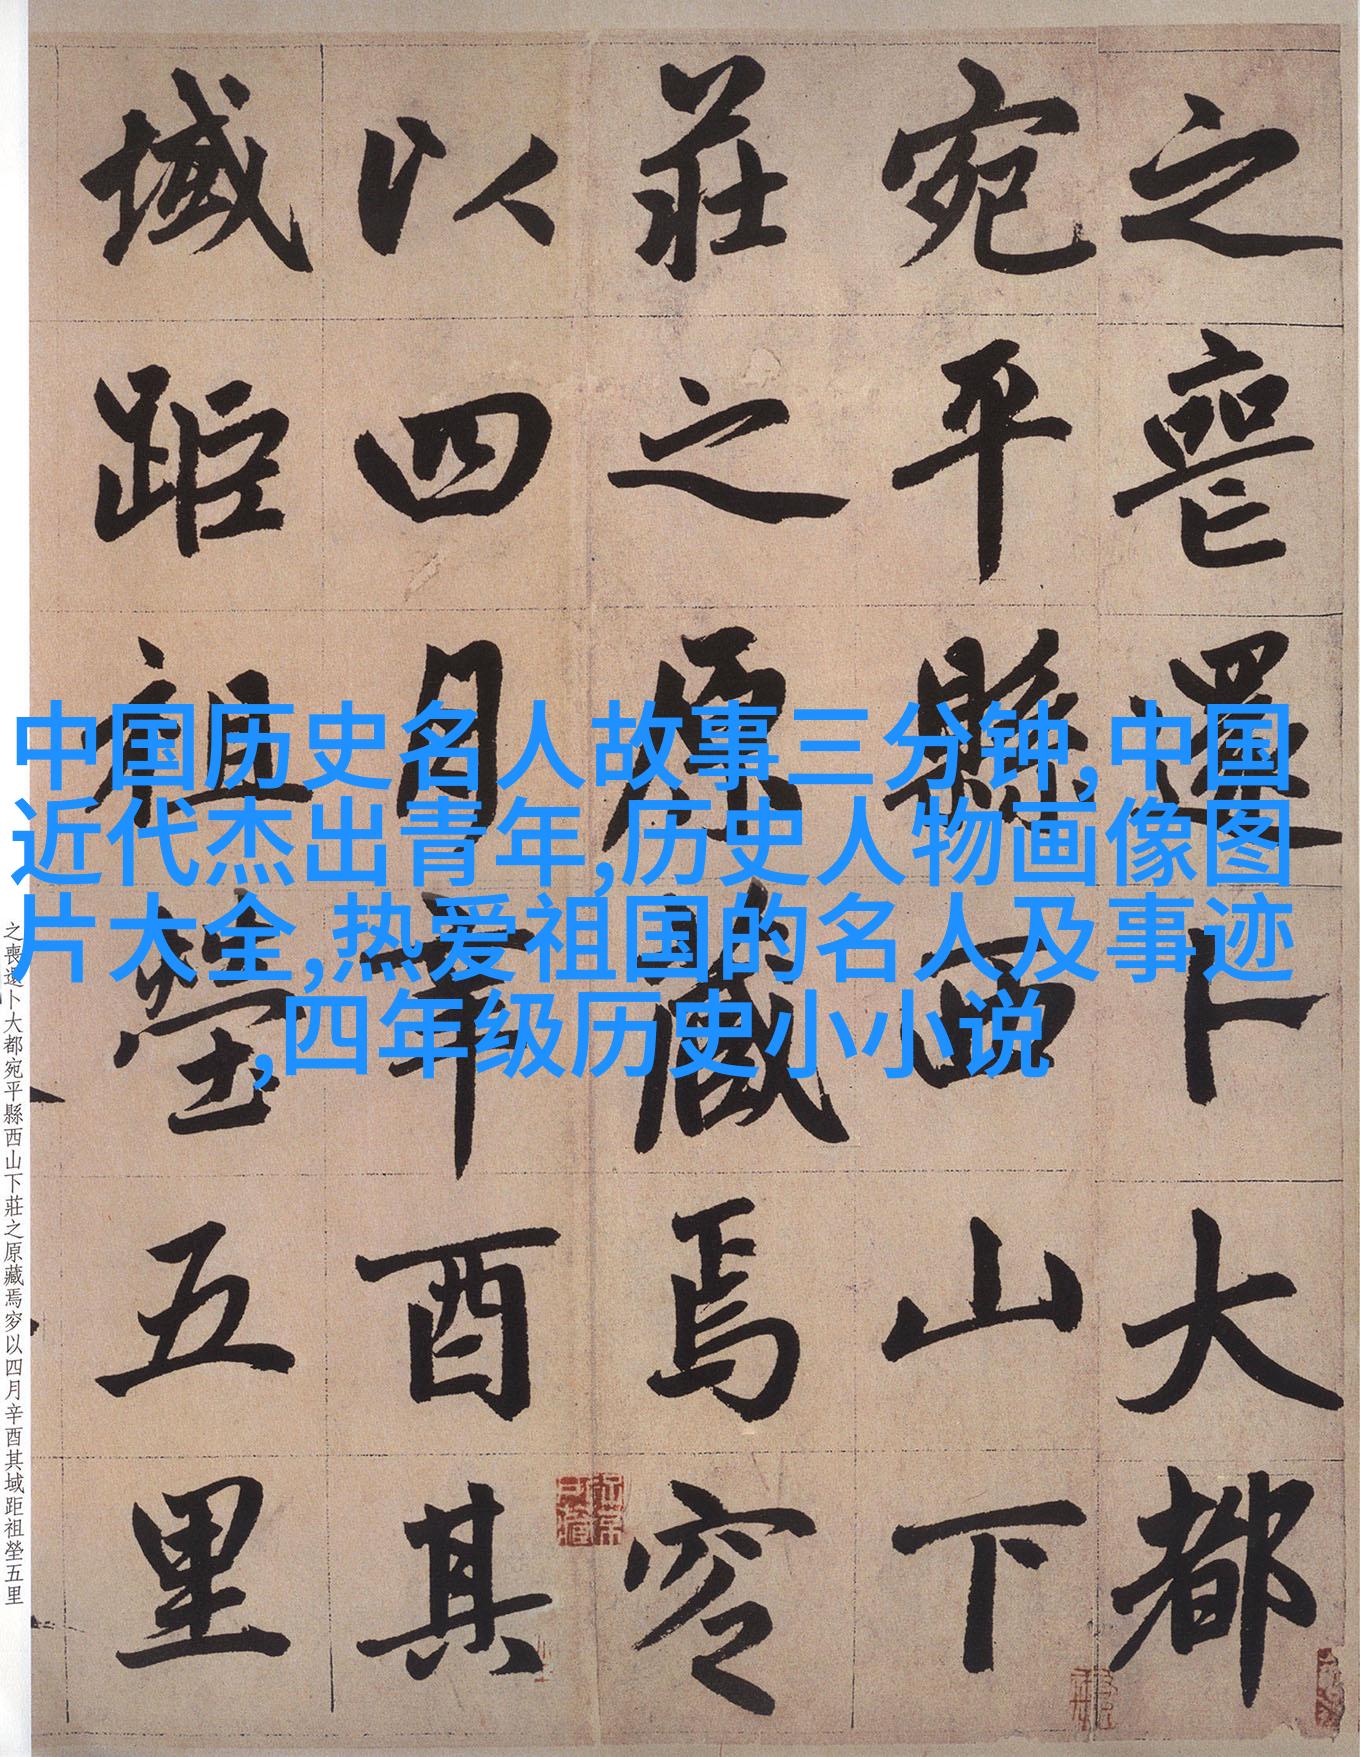 之喪還卜大都
宛平縣西山下
莊之原藏焉穸
以四月辛酉其
域距祖塋五里
中国历史名人故事三分钟,中国
近代杰出青年,历史人物画像图
片大全,热爱祖国的名人及事迹
,四年级历史小小说
之喪還卜大都宛平縣西山下莊之原藏焉穸以四月辛酉其域距祖塋五里